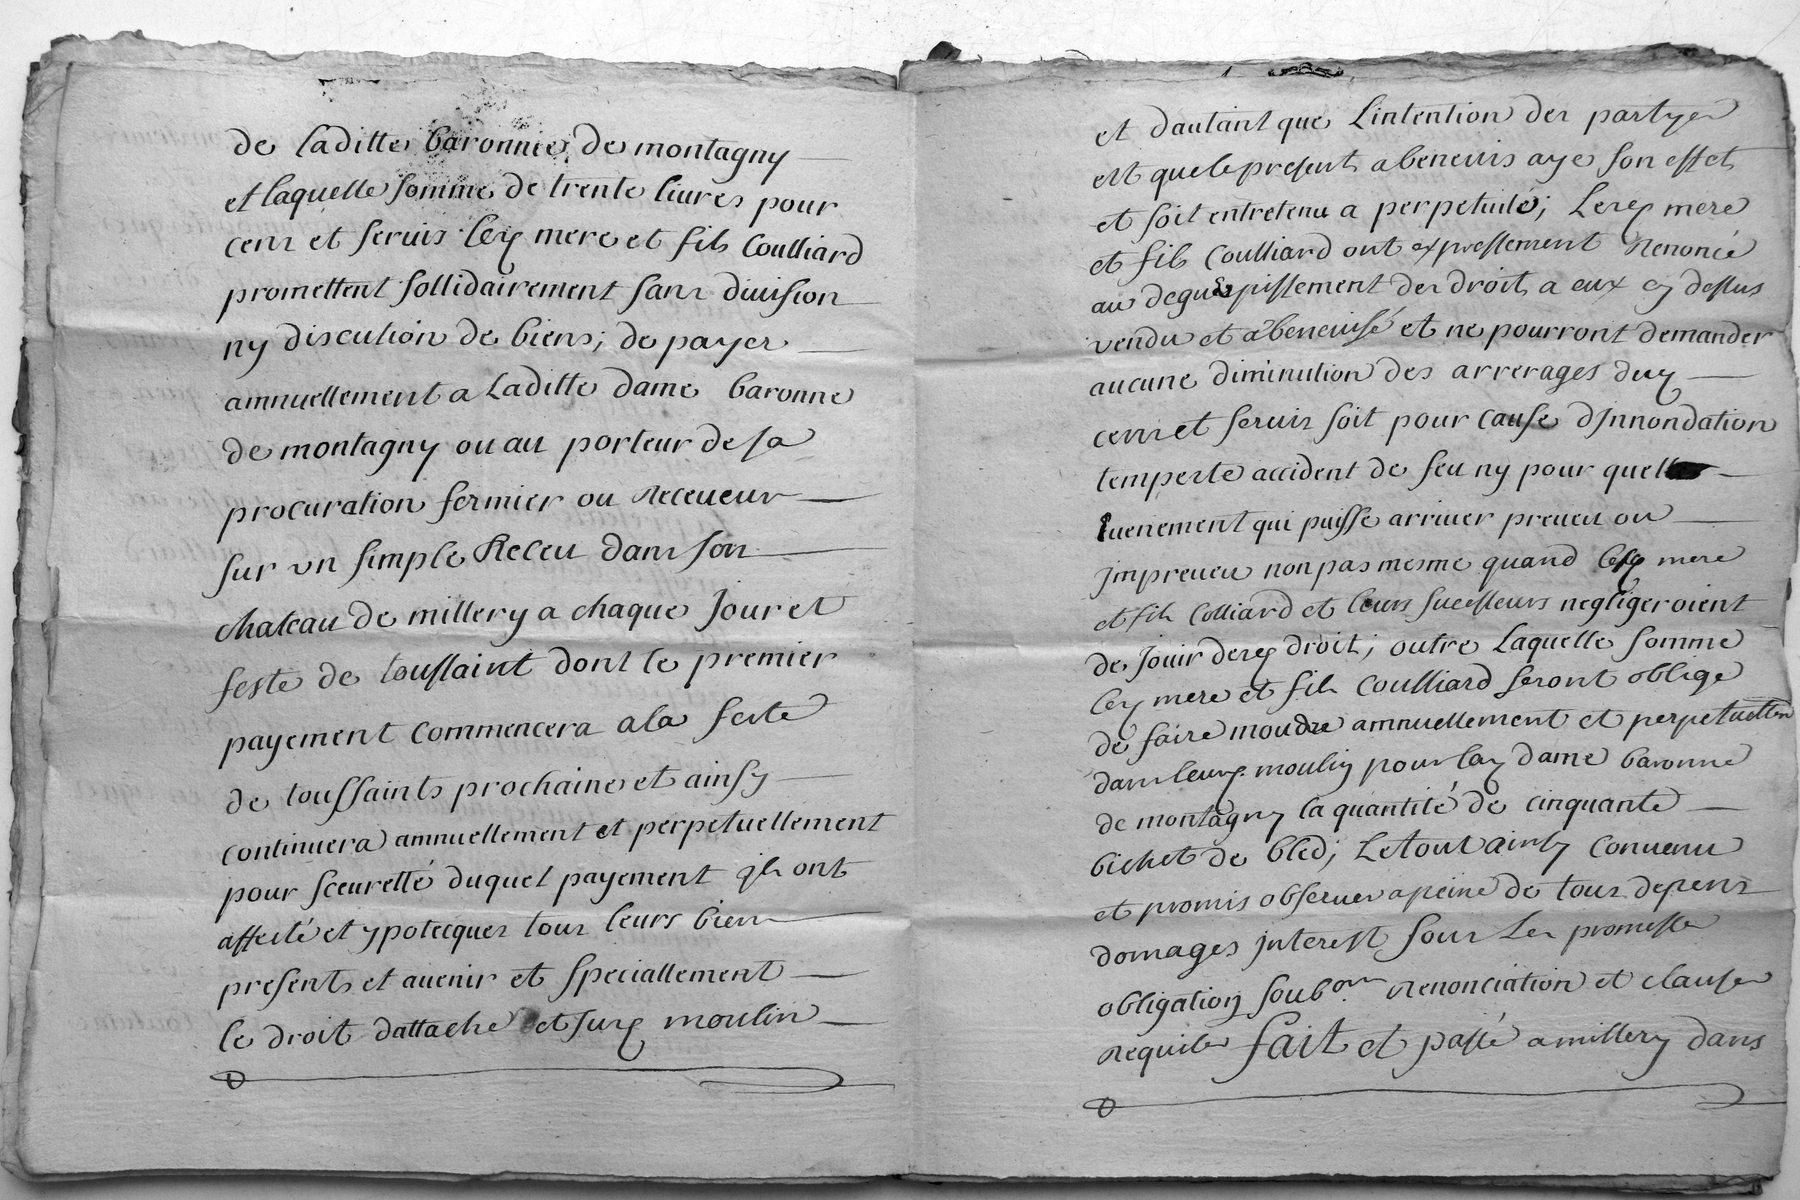 de laditte baronnie de montagny
et laquelle somme de trente livres pour
cens et servis lesd mere et fils Coulliard
promettent sollidairement sans division
ny discution de biens; de payer
annuellement a Laditte dame baronne
de montagny ou au porteur de sa
procuration fermier ou Receveur
sur un simple Receu dans son
chateau de millery a chaque Jour et
feste de toussaint dont le premier
payement commencera a la feste
de toussaints prochaine et ainsy
continuera annuellement et perpetuellement
pour sceuretté duquel payement ils ont
affecté et ypotecquez tous leurs biens
presents et avenir et speciallement
le droit dattache et susd moulin
et dautant que Lintention des partyes
est que le present abenevis aye son effet
et soit entretenu a perpetuité; Lesd mere
et fils Coulliard ont expressement Renoncé
au deguerpissement des droits a eux cy dessus
vendu et abenevisé et ne pourront demander
aucune diminution des arrerages dud
cens et servis soit pour cause dJnnondation
temperte accident de feu ny pour quelle
Evenement qui puisse arriver preveu ou
Jmpreveu non pas mesme quand lesd mere
et fils Colliard et leurs sucesseurs negligeroient
de Jouir desd droit; outre Laquelle somme
lesd mere et fils Coulliard seront oblige
de faire moudre annuellement et perpetuellem
dans leurd moulin pour lad dame baronne
de montagny la quantité de cinquante
bichet de bled; Le tout ainsy convenu
et promis observer a peine de tous depens
domages Jnterest sous Les promesses
obligation soubon Renonciation et clauses
Requises fait et passé a millery dans